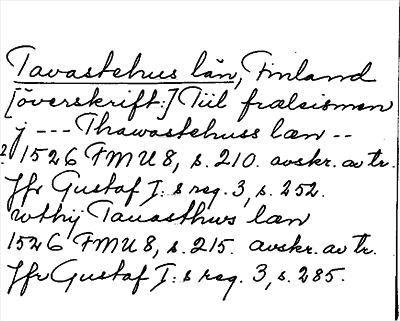 Tavastehus län, Finland
[överskrift:] Tiil frælsismen
j --- Thawastehuss læn --
? 1526 FMU 8, s. 210. avskr. av tr.
Jfr Gustaf I:s reg. 3, s. 252.
wthij Tauasthws læn
1526 FMU 8, s. 215. avskr. av tr.
Jfr Gustaf I:s reg. 3, s. 285.